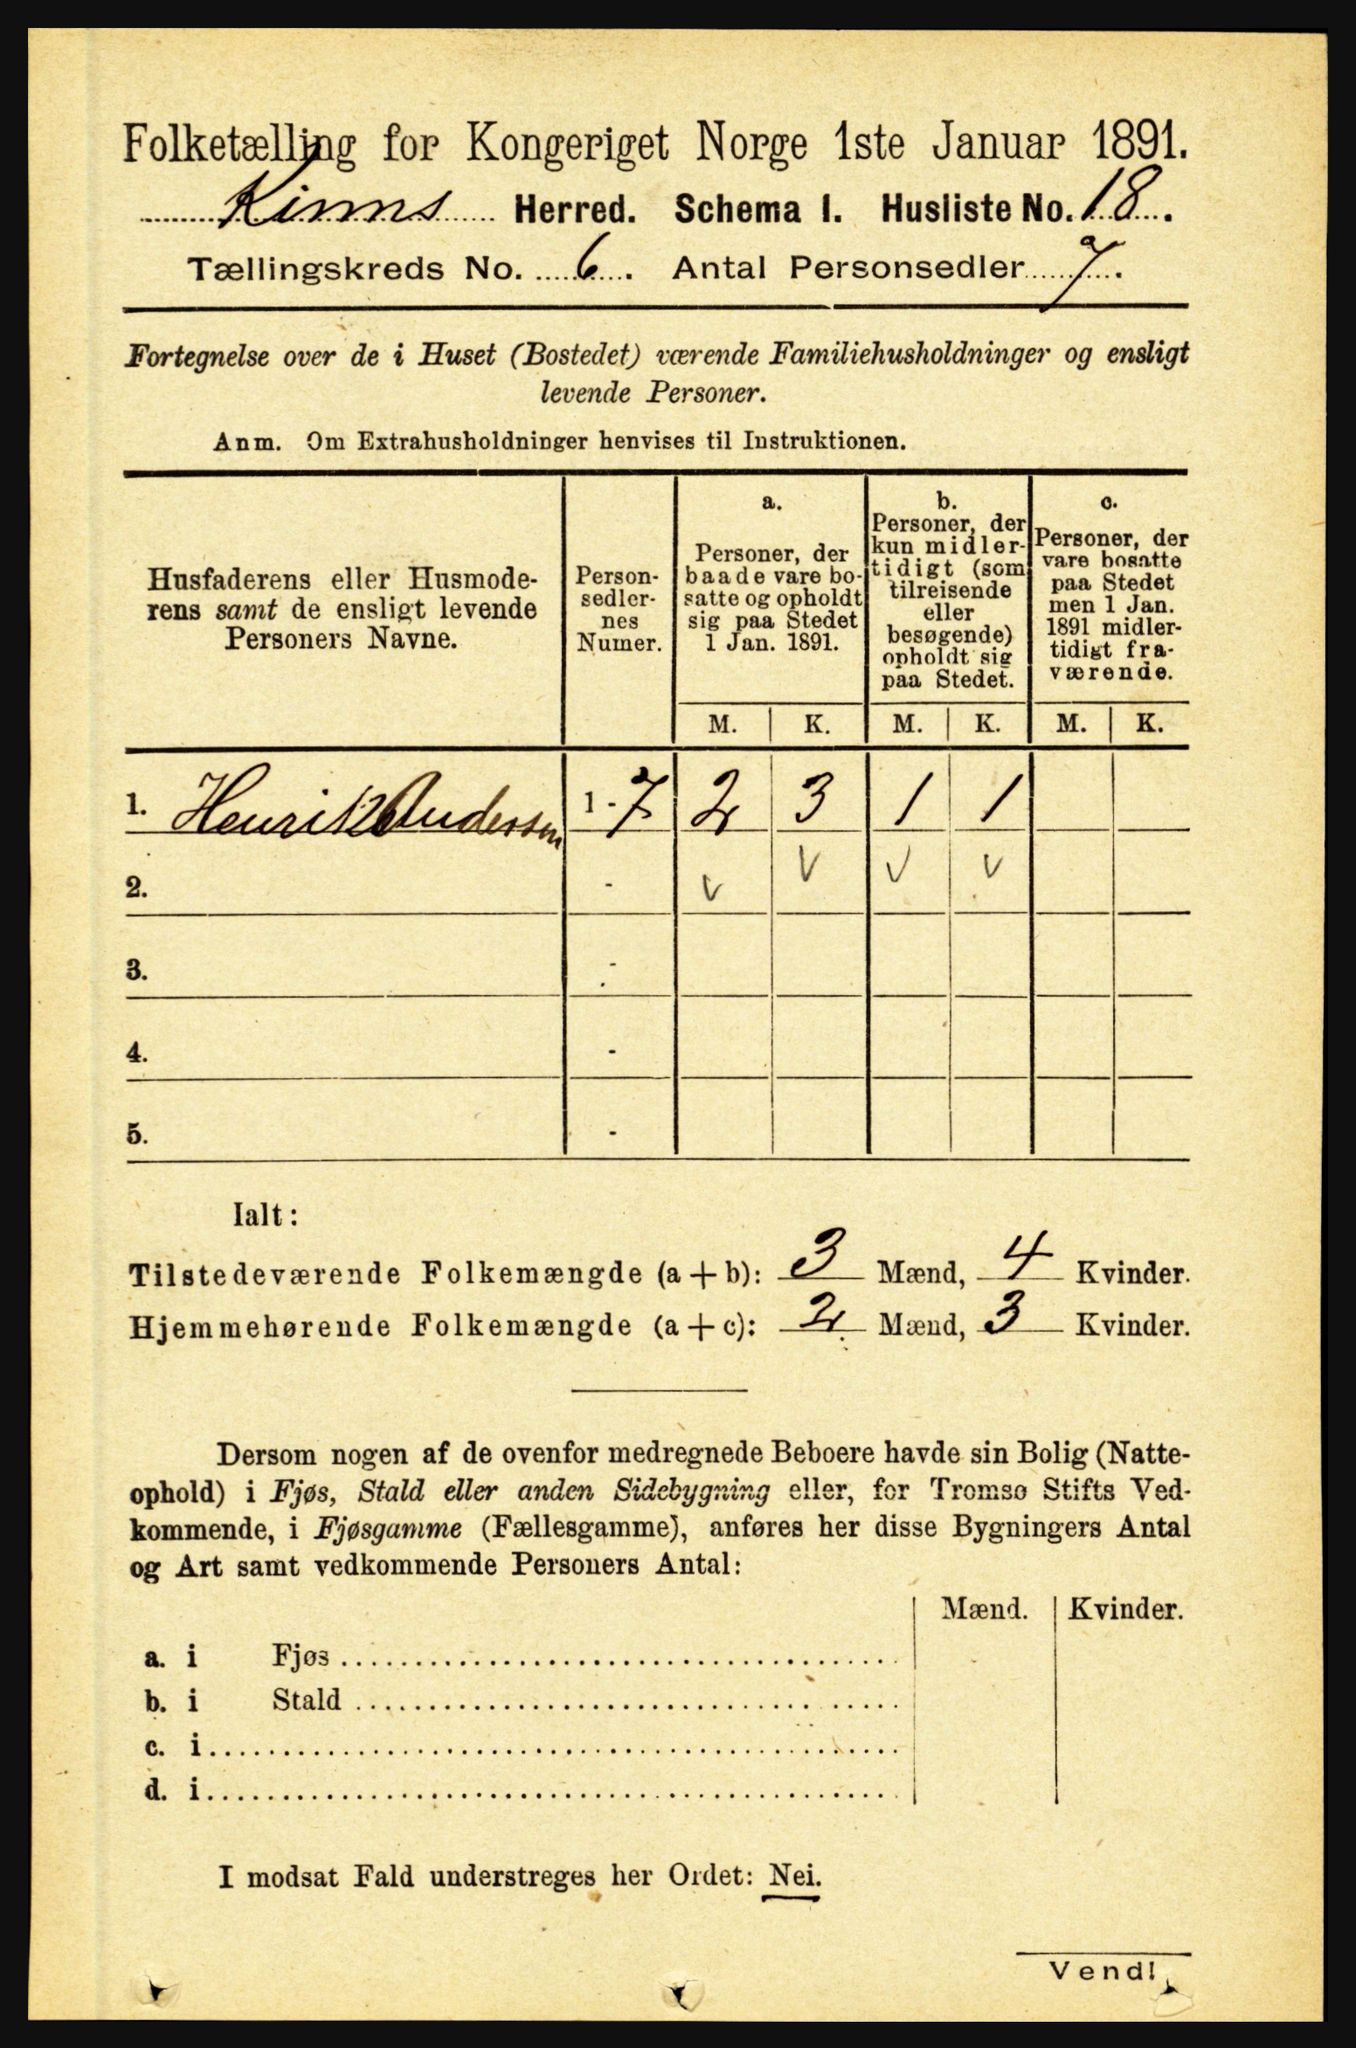 Folketælling for Kongeriget Norge 1ste Januar 1891.
Kinns Herred. Schema I. Husliste No. 18.
Tællingskreds No. 6. Antal Personsedler 7.
Fortegnelse over de i Huset (Bostedet) værende Familiehusholdninger og ensligt
levende Personer.
Anm. Om Extrahusholdninger henvises til Instruktionen.
Husfaderens eller Husmode-
rens samt de ensligt levende
Personers Navne.
Person-
sedler-
nes
Numer.
a.
Personer, der
baade vare bo-
satte og opholdt
sig paa Stedet
1 Jan. 1891.
b.
Personer, der
kun midler-
tidigt (som
tilreisende
eller
besøgende)
opholdt sig
paa Stedet.
c.
Personer, der
vare bosatte
paa Stedet
men 1 Jan.
1891 midler-
tidigt fra-
værende.
M. K. M. K. M. K.
1. Henrik Anderssen 1 - 7 2 3 1 1
2. - v v v v
3. -
4. -
5. -
Ialt:
Tilstedeværende Folkemængde (a + b): 3 Mænd, 4 Kvinder.
Hjemmehørende Folkemængde (a + c): 2 Mænd, 3 Kvinder.
Dersom nogen af de ovenfor medregnede Beboere havde sin Bolig (Natte-
ophold) i Fjøs, Stald eller anden Sidebygning eller, for Tromsø Stifts Ved-
kommende, i Fjøsgamme (Fællesgamme), anføres her disse Bygningers Antal
og Art samt vedkommende Personers Antal:
Mænd. Kvinder.
a. i Fjøs
b. i Stald
c. i
d. i
I modsat Fald understreges her Ordet: Nei.
Vend!